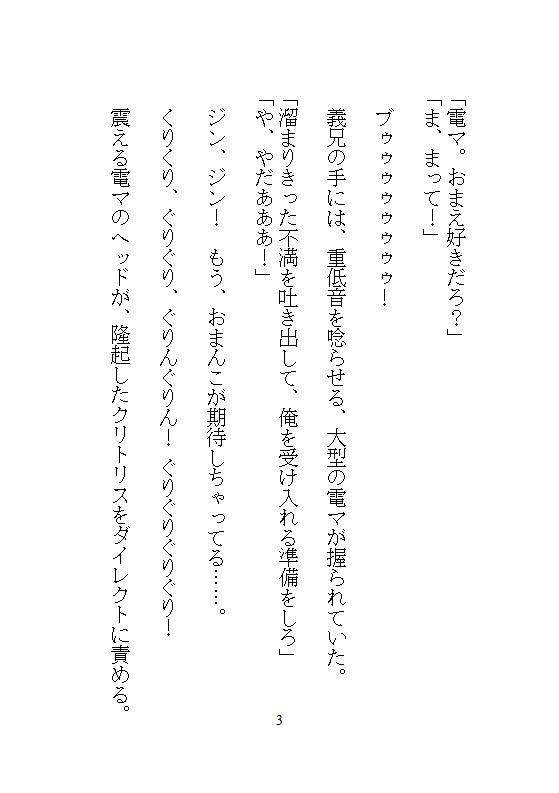 「電マ。おまえ好きだろ？」
「ま、まって！」
ブゥゥゥゥゥゥゥ！
義兄の手には、重低音を唸らせる、大型の電マが握られていた。
「溜まりきった不満を吐き出して、俺を受け入れる準備をしろ」
「や、やだあああ！」
ジン、ジン！　もう、おまんこが期待しちゃってる……。
くりくり、ぐりぐり、ぐりんぐりん！ ぐりぐりぐりぐり！
震える電マのヘッドが、隆起したクリトリスをダイレクトに責める。
3